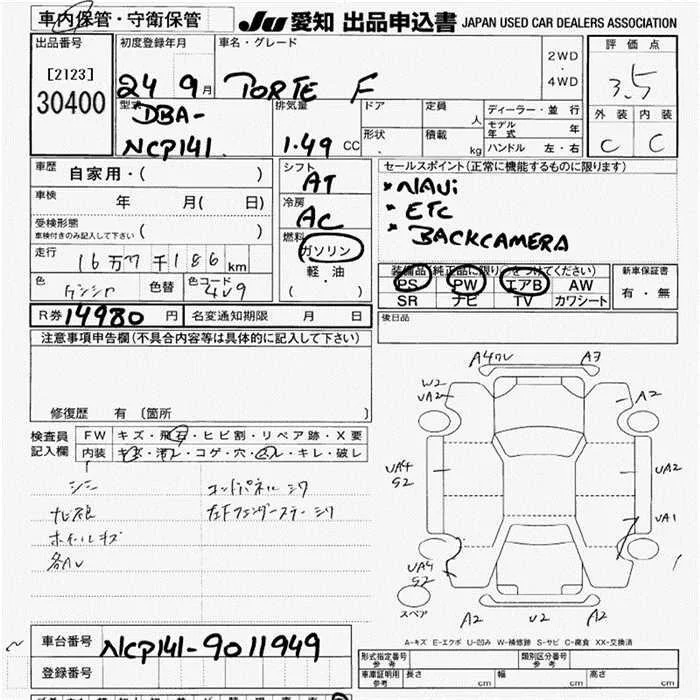 車内保管・守衛保管
JU 愛知 出品申込書 JAPAN USED CAR DEALERS ASSOCIATION
出品番号
[2123]
30400
初度登録年月
24 9月
車名・グレード
PORTE F
2WD
・
4WD
評価点
3.5
外装 内装
C C
型式
DBA-
NCP141
排気量
1.49 CC
ドア
定員
人
形状
積載
kg
ディーラー・並行
モデル年式 年
ハンドル 左・右
車歴
自家用・( )
車検
年 月( 日)
受検形態
車検付きのみ記入して下さい ( )
走行
16万7千186km
色
色替
色コード
4V9
シフト
AT
冷房
AC
燃料
ガソリン
軽油
( ・ )
セールスポイント(正常に機能するものに限ります)
*NAVi
*ETC
*BACKCAMERA
装備品(純正品に限り○をつけてください)
PS PW エアB AW
SR ナビ TV カワシート
新車保証書
有・無
R券 14980 円
名変通知期限 月 日
後日品
注意事項申告欄(不具合内容等は具体的に記入して下さい)
修復歴 有 〔箇所 〕
検査員記入欄
FW キズ・飛石・ヒビ割・リペア跡・X要
内装 キズ・汚レ・コゲ・穴・スレ・キレ・破レ
コンドパネル シワ
ホイールキズ
A3
W2
UA2
A2
UA4
S2
UA2
UA1
UA4
S2
スペア
A2
U2
A2
A-キズ E-エクボ U-凹み W-補修跡 S-サビ C-腐食 XX-交換済
車台番号
NCP141-9011949
登録番号
型式指定番号
参考
類別区分番号
参考
車庫証明用
参考
長さ cm
幅 cm
高さ cm